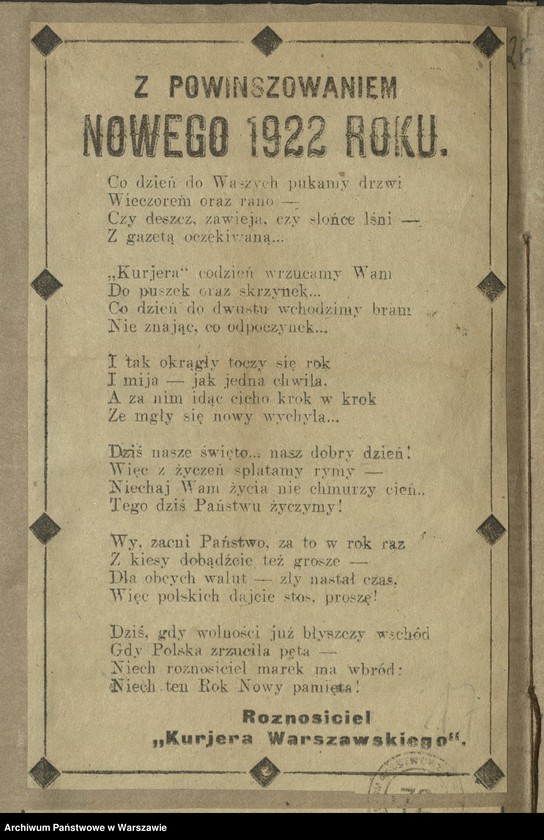 Z POWINSZOWANIEM
NOWEGO 1922 ROKU.
Co dzień do Waszych pukamy drzwi
Wieczorem oraz rano —
Czy deszcz, zawieja, czy słońce lśni —
Z gazetą oczekiwaną...
„Kurjera“ codzień wrzucamy Wam
Do puszek oraz skrzynek...
Co dzień do dwustu wchodzimy bram
Nie znając, co odpoczynek...
I tak okrągły toczy się rok
I mija — jak jedna chwila,
A za nim idąc cicho krok w krok
Ze mgły się nowy wychyla...
Dziś nasze święto... nasz dobry dzień!
Więc z życzeń splatamy rymy —
Niechaj Wam życia nie chmurzy cień..
Tego dziś Państwu życzymy!
Wy, zacni Państwo, za to w rok raz
Z kiesy dobądźcie też grosze —
Dla obcych walut — zły nastał czas,
Więc polskich dajcie stos, proszę!
Dziś, gdy wolności już błyszczy wschód
Gdy Polska zrzuciła pęta —
Niech roznosiciel marek ma wbród:
Niech ten Rok Nowy pamięta!
Roznosiciel
„Kurjera Warszawskiego“.
Archiwum Państwowe w Warszawie